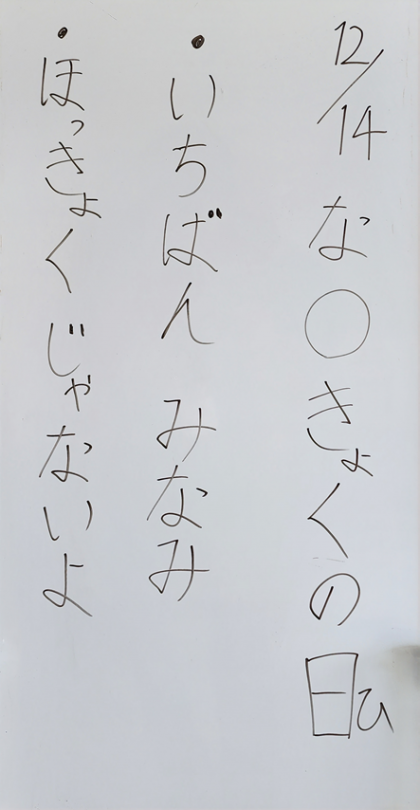 12/14 な○きょくの日ひ
・いちばん みなみ
・ほっきょくじゃないよ